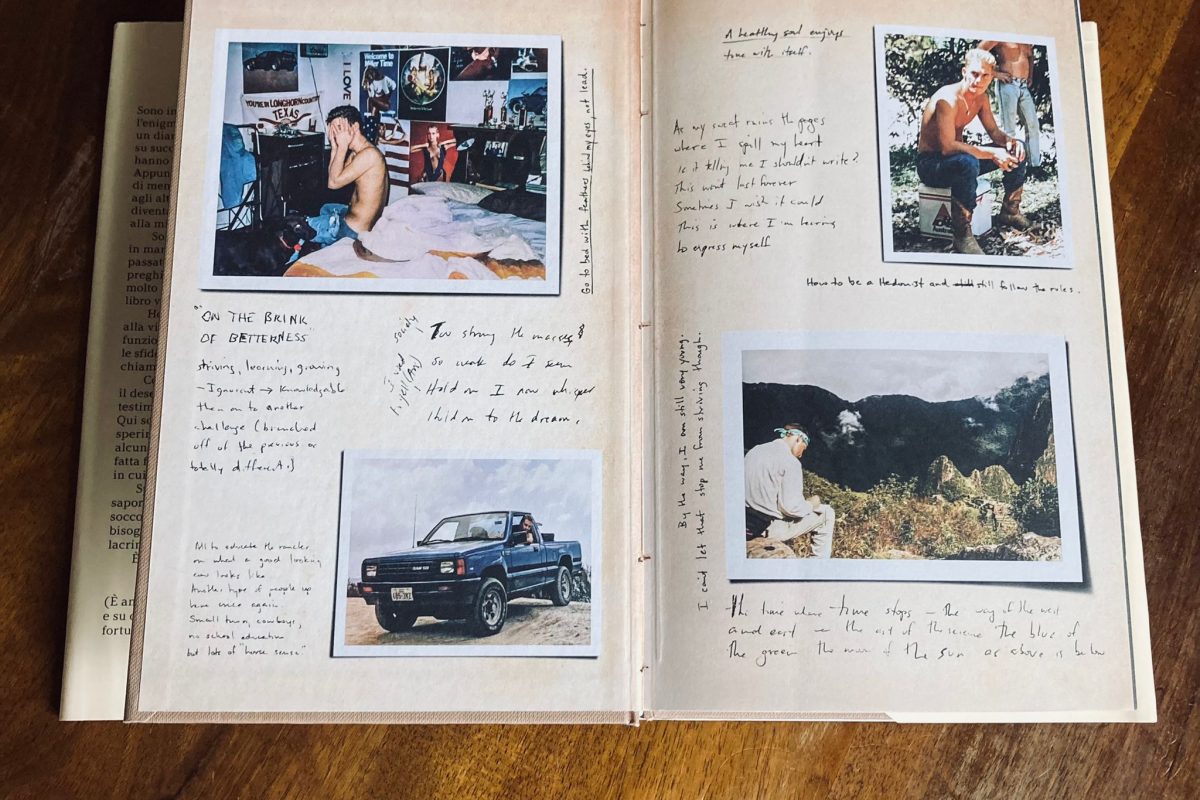 Sono in
l'enigm
un diar
su succ
hanno
Appun
di men
agli alt
diventa
alla mi
So
in mar
passat
preghi
molto
libro v
He
alla vi
funzio
le sfide
chiam
Co
il dese
testim
Qui so
sperin
alcun
fatta f
in cui
S
sapor
socco
bisog
lacrin
È
(È an
e su c
fortu
I LOVE
Welcome To
Miller Time
YOU'RE IN LONGHORN COUNTRY
TEXAS
Go to bed with feathers behind my eyes, not lead.
"ON THE BRINK
OF BETTERNESS"
striving, learning, growing
– Ignorant → Knowledgable
then on to another
challenge (branched
off of the previous or
totally different.)
Too strong the masses
So weak do I seem
Hold on I now whisper
Hold on to the dream.
to educate the rancher
on what a good looking
cow looks like
Another type of people up
here once again.
Small town, cowboys,
no school education
but lots of "horse sense."
A healthy soul enjoys
time with itself.
As my sweat ruins the pages
where I spill my heart
Is it telling me I shouldn't write?
This won't last forever
Sometimes I wish it could
This is where I'm learning
to express myself
How to be a Hedonist and still follow the rules.
By the way, I am still very young.
I can't let that stop me from striving though.
The time where time stops – the way of the west
and east – the art of the scene the blue of
the green the man of the sun as above is below